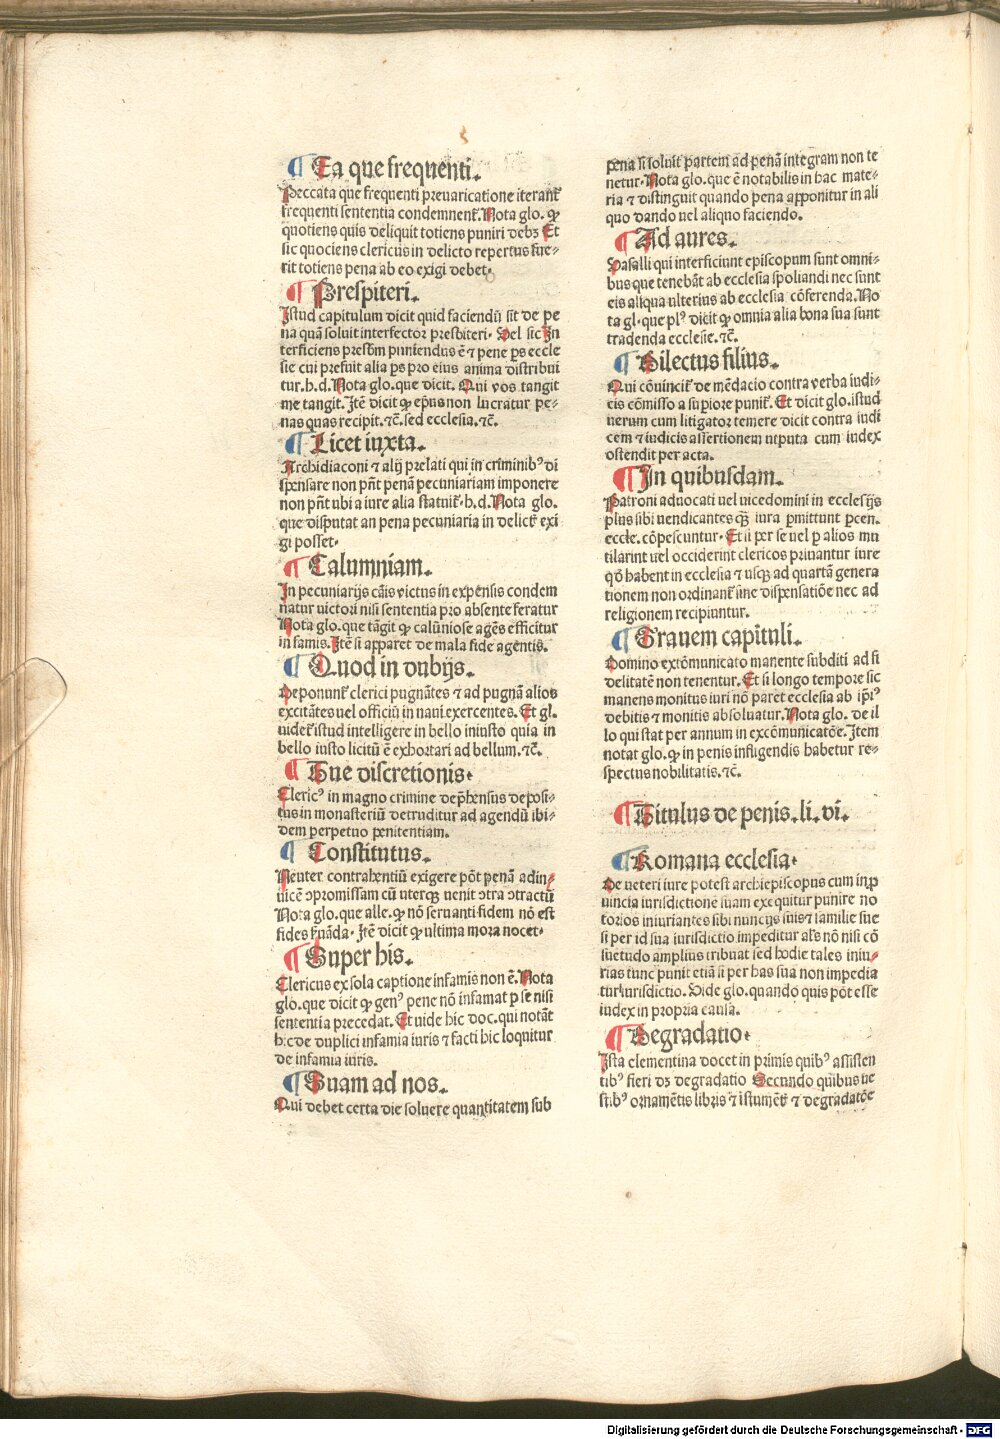 ¶ Ea que frequenti.
Peccata que frequenti preuaricatione iterant᷑
frequenti sententia condemnent᷑. Nota glo. ꝙ
quotiens quis deliquit totiens puniri debꝫ Et
sic quociens clericus in delicto repertus fue⸗
rit totiens pena ab eo exigi debet.
¶ Prespiteri.
Istud capitulum dicit quid faciendū sit de pe
na quā soluit interfector presbiteri. Uel sic In
terficiens presbm̄ puniendus ē ⁊ pene ps eccle
sie cui prefuit alia ps pro eius anima distribui
tur. h. d. Nota glo. que dicit. Qui vos tangit
me tangit. Itē dicit ꝙ ep̄us non lucratur pe⸗
nas quas recipit. ⁊c̄. sed ecclesia. ⁊c̄.
¶ Licet iuxta.
Archidiaconi ⁊ alij prelati qui in criminibꝰ di
spensare non pn̄t penā pecuniariam imponere
non pn̄t ubi a iure alia statuit᷑. h. d. Nota glo.
que disputat an pena pecuniaria in delict᷑ exi
gi posset.
¶ Calumniam.
In pecuniarijs cāis victus in expensis condem
natur victori nisi sententia pro absente feratur
Nota glo. que tāgit ꝙ calūniose agēs efficitur
infamis. Itē si apparet de mala fide agentis.
¶ Quod in dubijs.
Deponunt᷑ clerici pugnātes ⁊ ad pugnā alios
excitātes uel officiū in naui exercentes. Et gl.
uidet᷑ istud intelligere in bello iniusto quia in
bello iusto licitū ē exhortari ad bellum. ⁊c̄.
¶ Tue discretionis.
Clericꝰ in magno crimine dep̄hensus deposi⸗
tus in monasteriū detruditur ad agendū ibi⸗
dem perpetuo penitentiam.
¶ Constitutus.
Neuter contrahentiū exigere pōt penā adin⸗
uicē ꝓmissam cū uterqꝫ uenit ↄtra ↄtractū
Nota glo. que alle. ꝙ nō seruanti fidem nō est
fides ſuāda. Itē dicit ꝙ ultima mora nocet.
¶ Super his.
Clericus ex sola captione infamis non ē. Nota
glo. que dicit ꝙ genꝰ pene nō infamat ꝑ se nisi
sententia precedat. Et uide hic doc. qui notāt
hic de duplici infamia iuris ⁊ facti hic loquitur
de infamia iuris.
¶ Suam ad nos.
Qui debet certa die soluere quantitatem sub
pena si soluit partem ad penā integram non te
netur. Nota glo. que ē notabilis in hac mate⸗
ria ⁊ distinguit quando pena apponitur in ali
quo dando uel aliquo faciendo.
¶ Ad aures.
Vasalli qui interficiunt episcopum sunt omni⸗
bus que tenebāt ab ecclesia spoliandi nec sunt
eis aliqua ulterius ab ecclesia cōferenda. No
ta gl. que plꝰ dicit ꝙ omnia alia bona sua sunt
tradenda ecclesie. ⁊c̄.
¶ Dilectus filius.
Qui cōuincit᷑ de mēdacio contra verba iudi⸗
cis cōmisso a supiore punit᷑. Et dicit glo. istud
uerum cum litigator temere dicit contra iudi
cem ⁊ iudicis assertionem utputa cum iudex
ostendit per acta.
¶ In quibusdam.
Patroni aduocati uel uicedomini in ecclesijs
plus sibi uendicantes qꝫ̄ iura ꝑmittunt ꝑ cen.
eccle. cōpescuntur. Et si per se uel ꝑ alios mu
tilarint uel occiderint clericos priuantur iure
qd̄ habent in ecclesia ⁊ usqꝫ ad quartā genera
tionem non ordinant᷑ sine dispensatiōe nec ad
religionem recipiuntur.
¶ Grauem capituli.
Domino excōmunicato manente subditi ad fi
delitatē non tenentur. Et si longo tempore sic
manens monitus iuri nō paret ecclesia ab ip̄iꝰ
debitis ⁊ monitis absoluatur. Nota glo. de il
lo qui stat per annum in excōmunicatōe. Item
notat glo. ꝙ in penis infligendis habetur re⸗
spectus nobilitatis. ⁊c̄.
¶ Titulus de penis. li. vi.
¶ Romana ecclesia.
De ueteri iure potest archiepiscopus cum in ꝓ
uincia iurisdictionē suam exequitur punire no
torios iniuriantes sibi nuncijs suis ⁊ familie sue
si per id sua iurisdictio impeditur als̄ nō nisi cō
suetudo amplius tribuat sed hodie tales iniu⸗
rias tunc punit etiā si per has sua non impedia
tur iurisdictio. Vide glo. quando quis pōt esse
iudex in propria causa.
¶ Degradatio.
Ista clementina docet in primis quibꝰ assisten
tibꝰ fieri dꝫ degradatio Secundo quibus ue
stibꝰ ornamētis libris ⁊ īstumēt᷑ ⁊ degradatōe
Digitalisierung gefördert durch die Deutsche Forschungsgemeinschaft - DFG